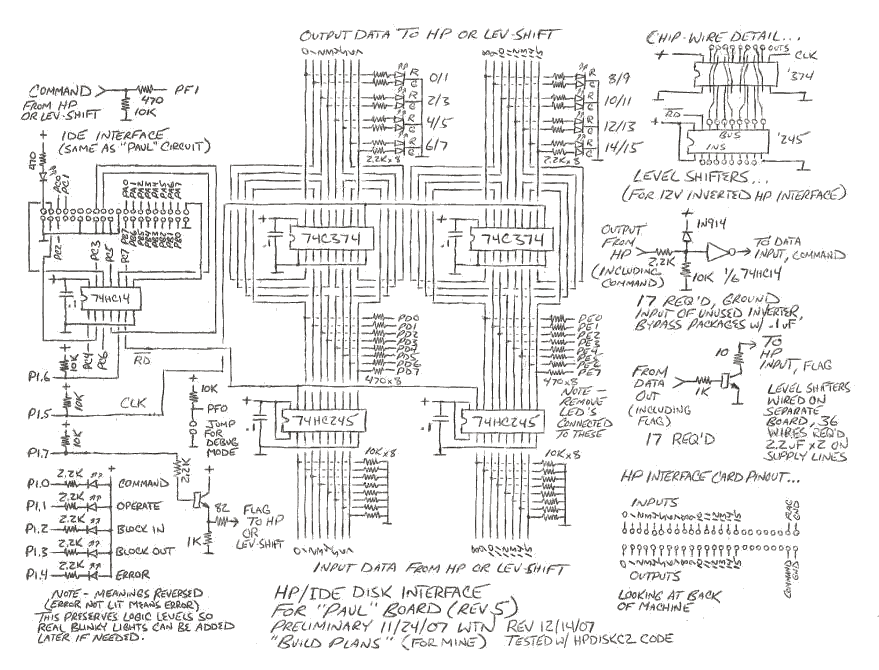 OUTPUT DATA TO HP OR LEV-SHIFT
0/1
2/3
4/5
6/7
2.2K x 8
8/9
10/11
12/13
14/15
2.2K x 8
CHIP-WIRE DETAIL...
OUTS
CLK
'374
RD
BUS
INS
'245
COMMAND
FROM HP
OR LEV-SHIFT
470
PF1
10K
IDE INTERFACE
(SAME AS "PAUL" CIRCUIT)
470
PC0
PC1
PA0
PA1
PA2
PA3
PA4
PA5
PA6
PA7
PC2
PC3
PC5
PB7
PB6
PB5
PB4
PB3
PB2
PB1
PB0
74HC14
.1
PC4
PC6
RD
P1.6
10K
P1.5
10K
CLK
P1.7
10K
10K
PF0
JUMP
FOR
DEBUG
MODE
2.2K
82
FLAG
TO HP
OR
LEV-SHIFT
1K
P1.0
2.2K
COMMAND
P1.1
2.2K
OPERATE
P1.2
2.2K
BLOCK IN
P1.3
2.2K
BLOCK OUT
P1.4
2.2K
ERROR
NOTE - MEANINGS REVERSED
(ERROR NOT LIT MEANS ERROR)
THIS PRESERVES LOGIC LEVELS SO
REAL BLINKY LIGHTS CAN BE ADDED
LATER IF NEEDED.
74C374
.1
74C374
.1
PD0
PD1
PD2
PD3
PD4
PD5
PD6
PD7
470 x 8
PE0
PE1
PE2
PE3
PE4
PE5
PE6
PE7
470 x 8
NOTE -
REMOVE
LED'S
CONNECTED
TO THESE
74HC245
.1
74HC245
.1
10K x 8
10K x 8
INPUT DATA FROM HP OR LEV-SHIFT
LEVEL SHIFTERS...
(FOR 12V INVERTED HP INTERFACE)
OUTPUT
FROM
HP
(INCLUDING
COMMAND)
2.2K
1N914
10K
1/6 74HC14
TO DATA
INPUT, COMMAND
17 REQ'D, GROUND
INPUT OF UNUSED INVERTER,
BYPASS PACKAGES W/ .1uF
FROM
DATA
OUT
(INCLUDING
FLAG)
1K
10
TO
HP
INPUT, FLAG
17 REQ'D
LEVEL SHIFTERS
WIRED ON
SEPARATE
BOARD, 36
WIRES REQ'D
2.2uF x 2 ON
SUPPLY LINES
HP INTERFACE CARD PINOUT...
INPUTS
FLAG
GND
OUTPUTS
COMMAND
GND
LOOKING AT BACK
OF MACHINE
HP/IDE DISK INTERFACE
FOR "PAUL" BOARD (REV 5)
PRELIMINARY 11/24/07 WTN REV 12/14/07
"BUILD PLANS" (FOR MINE) TESTED W/ HPDISKC2 CODE